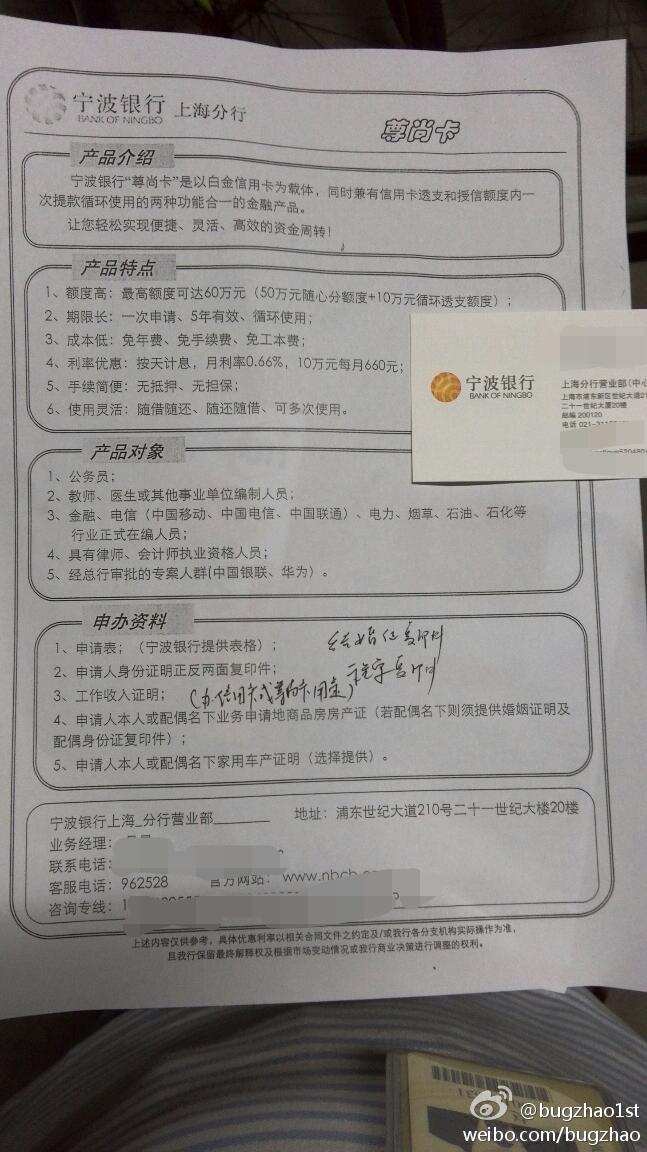 宁波银行 上海分行
BANK OF NINGBO
尊尚卡
产品介绍
宁波银行“尊尚卡”是以白金信用卡为载体，同时兼有信用卡透支和授信额度内一
次提款循环使用的两种功能合一的金融产品。
让您轻松实现便捷、灵活、高效的资金周转！
产品特点
1、额度高：最高额度可达60万元（50万元随心分额度+10万元循环透支额度）；
2、期限长：一次申请、5年有效、循环使用；
3、成本低：免年费、免手续费、免工本费；
4、利率优惠：按天计息，月利率0.66%，10万元每月660元；
5、手续简便：无抵押、无担保；
6、使用灵活：随借随还、随还随借、可多次使用。
宁波银行
BANK OF NINGBO
上海分行营业部(中心
上海市浦东新区世纪大道21
二十一世纪大厦20楼
邮编 200120
电话 021-
产品对象
1、公务员；
2、教师、医生或其他事业单位编制人员；
3、金融、电信（中国移动、中国电信、中国联通）、电力、烟草、石油、石化等
行业正式在编人员；
4、具有律师、会计师执业资格人员；
5、经总行审批的专案人群(中国银联、华为）。
申办资料
1、申请表；（宁波银行提供表格）； 结婚证复印件
2、申请人身份证明正反两面复印件；
3、工作收入证明；
4、申请人本人或配偶名下业务申请地商品房房产证（若配偶名下则须提供婚姻证明及
配偶身份证复印件）；
5、申请人本人或配偶名下家用车产证明（选择提供）。
宁波银行上海_分行营业部 地址：浦东世纪大道210号二十一世纪大楼20楼
业务经理：
联系电话：
客服电话：962528 官方网站：www.nbcb.
咨询专线：
上述内容仅供参考，具体优惠利率以相关合同文件之约定及/或我行各分支机构实际操作为准，
且我行保留最终解释权及根据市场变动情况或我行商业决策进行调整的权利。
@bugzhao1st
weibo.com/bugzhao